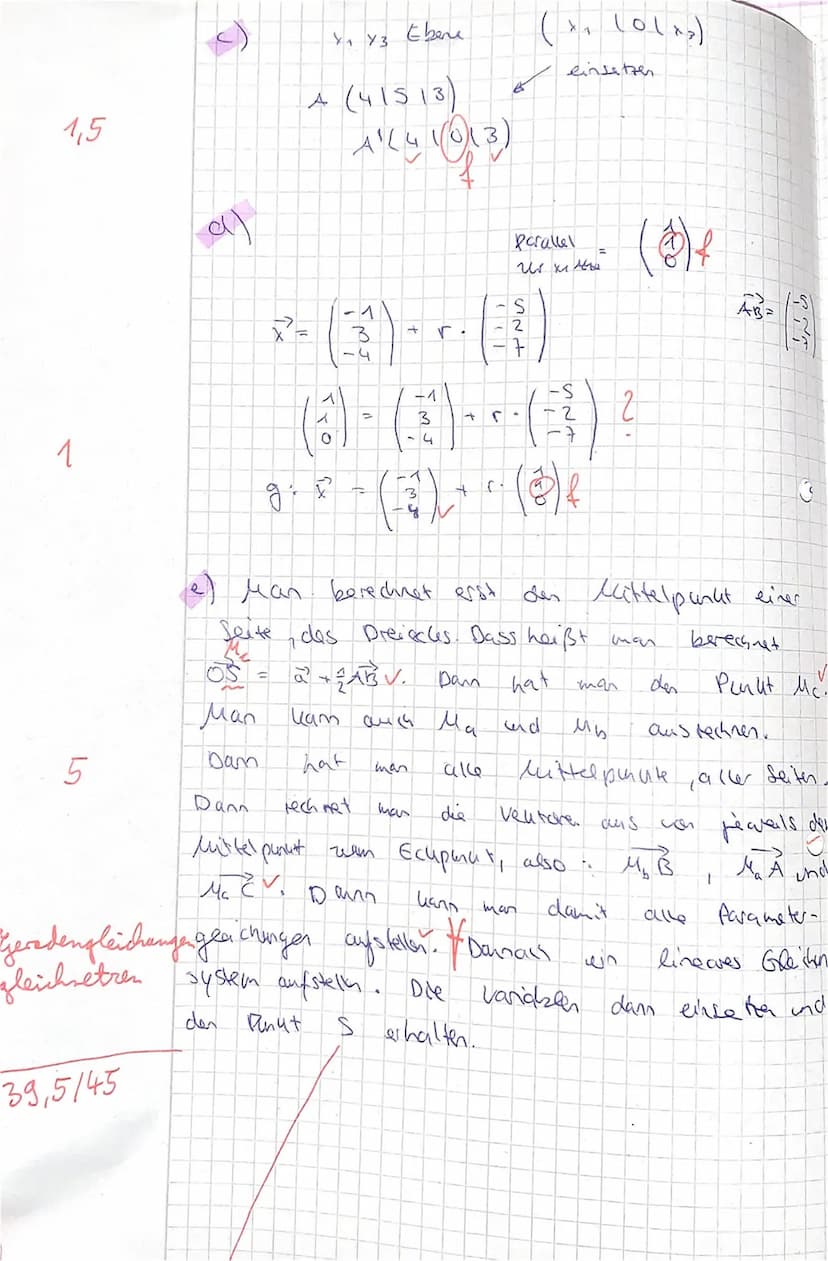 c) x₁ x₃ Ebene (x₁ | 0 | x₃)
einsetzen
A (4 | 5 | 3)
1,5
A' (4 | 0 | 3)
✓ f ✓
d)
parallel = (1 1 0) f
zur
x⃗ = (-1 3 -4) + r · (-5 -2 -7)
A⃗B = (-5 -2 -7)
(1 1 0) = (-1 3 -4) + r · (-5 -2 -7) ?
1
g: x⃗ = (-1 3 -4) ✓ + r · (1 1 0) f
e) Man berechnet erst den Mittelpunkt einer
Seite, des Dreiecks. Dass heißt man berechnet
Mc
O⃗S = a⃗ + 1/2 A⃗B ✓. Dann hat man den Punkt Mc. ✓
Man kann auch Ma und Mb ausrechnen.
5
Dann hat man alle Mittelpunkte, aller Seiten.
Dann rechnet man die Vektoren aus von jeweils den
Mittelpunkt zum Eckpunkt, also: M⃗bB, M⃗aA und
M⃗cC ✓. Dann kann man damit alle Parameter-
gleichungen aufstellen. ✓ Dannach ein lineares Gleichen
Geradengleichungen
gleichsetzen
system aufstellen. Die Variablen dann einsetzen und
den Punkt S erhalten.
39,5/45